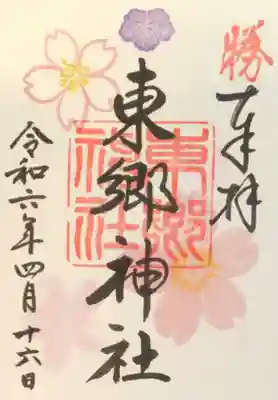 勝
奉拝
東郷神社
東郷
神社
令和六年四月十六日